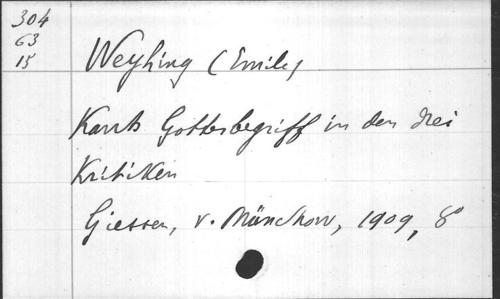 304
63
15
Weyhing (Emile)
Kants Gottesbegriff in den drei
Kritiken
Giessen, v. Münchow, 1909, 8°